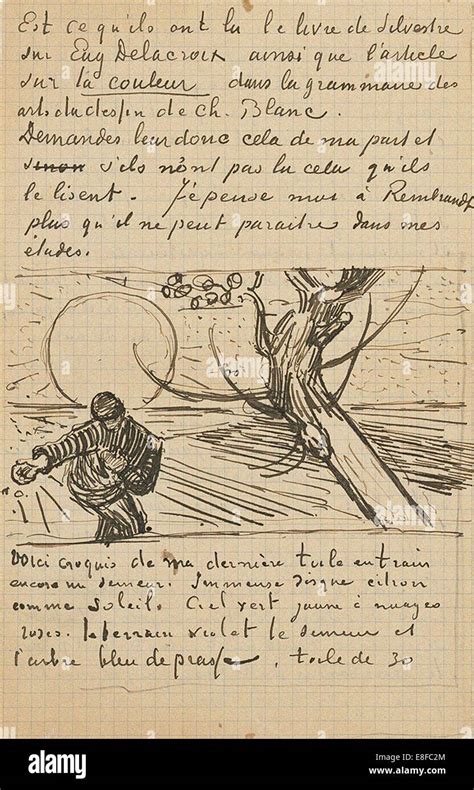 Est ce qu'ils ont lu le livre de Silvestre
sur Eug Delacroix ainsi que l'article
sur la couleur dans la grammaire des
arts du dessin de Ch. Blanc.
Demandes leur donc cela de ma part et
sinon s'ils n'ont pas lu cela qu'ils
le lisent. J'epense moi à Rembrandt
plus qu'il ne peut paraitre dans mes
études.
Voici croquis de ma dernière toile en train
encore un semeur. Immense disque citron
comme soleil. Ciel vert jaune à nuages
roses. le terrain violet le semeur et
l'arbre bleu de prusse. toile de 30
alamy
Image ID: E8FC2M
www.alamy.com